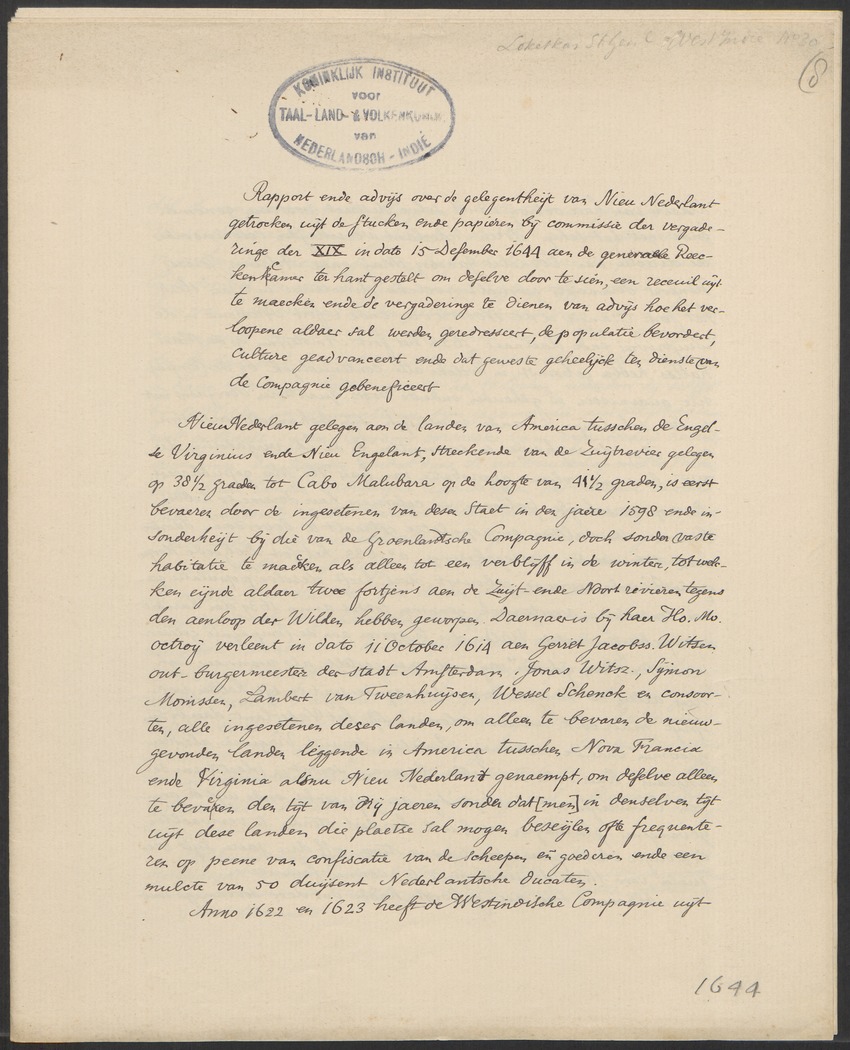 Loketkas St. Gen.l West Indië No 30
8
KONINKLIJK INSTITUUT
voor
TAAL-LAND- & VOLKENKUNDE
van
NEDERLANDSCH-INDIË
Rapport ende advijs over de gelegentheijt van Nieu Nederlant
getrocken uijt de stucken ende papieren bij commissie der vergade-
ringe der XIX in dato 15 Desember 1644 aen de generaele Reec-
kenkamer ter hant gestelt om deselve door te sien, een receuil uijt
te maecken ende de vergaderinge te dienen van advijs hoe het ver-
loopene aldaer sal werden geredresseert, de populatie bevordert,
culture geadvanceert ende dat geweste geheelijck ten dienste van
de Compagnie gebeneficeert
Nieu Nederlant gelegen aen de landen van America tusschen de Engel-
se Virginius ende Nieu Engelant, streckende van de Zuijtrevier gelegen
op 38½ graden tot Cabo Malubara op de hoogte van 41½ graden, is eerst
bevaeren door de ingesetenen van desen Staet in den jaere 1598 ende in-
sonderheijt bij die van de Groenlantsche Compagnie, doch sonder vaste
habitatie te maecken als alleen tot een verblijff in de winter, tot wel-
ken eijnde aldaer twee fortjens aen de Zuijt- ende Noort rivieren tegens
den aenloop der Wilden hebben geworpen. Daernaer is bij haer Ho. Mo.
octroij verleent in dato 11 October 1614 aen Gerret Jacobss. Witsen
out-burgermeester der stadt Amsterdam, Jonas Witsz., Sijmon
Morrissen, Lambert van Tweenhuijsen, Wessel Schenck en consoor-
ten, alle ingesetenen deser landen, om alleen te bevaren de nieuw-
gevonden landen leggende in America tusschen Nova Francia
ende Virginia alsnu Nieu Nederlant genaempt, om deselve alleen
te bevaren den tijt van drij jaeren sonder dat [men] in denselven tijt
uijt dese landen die plaetse sal mogen beseijlen ofte frequente-
ren op peene van confiscatie van de scheepen en goederen ende een
mulcte van 50 duijsent Nederlantsche Ducaten.
Anno 1622 en 1623 heeft de Westindische Compagnie uijt
1644